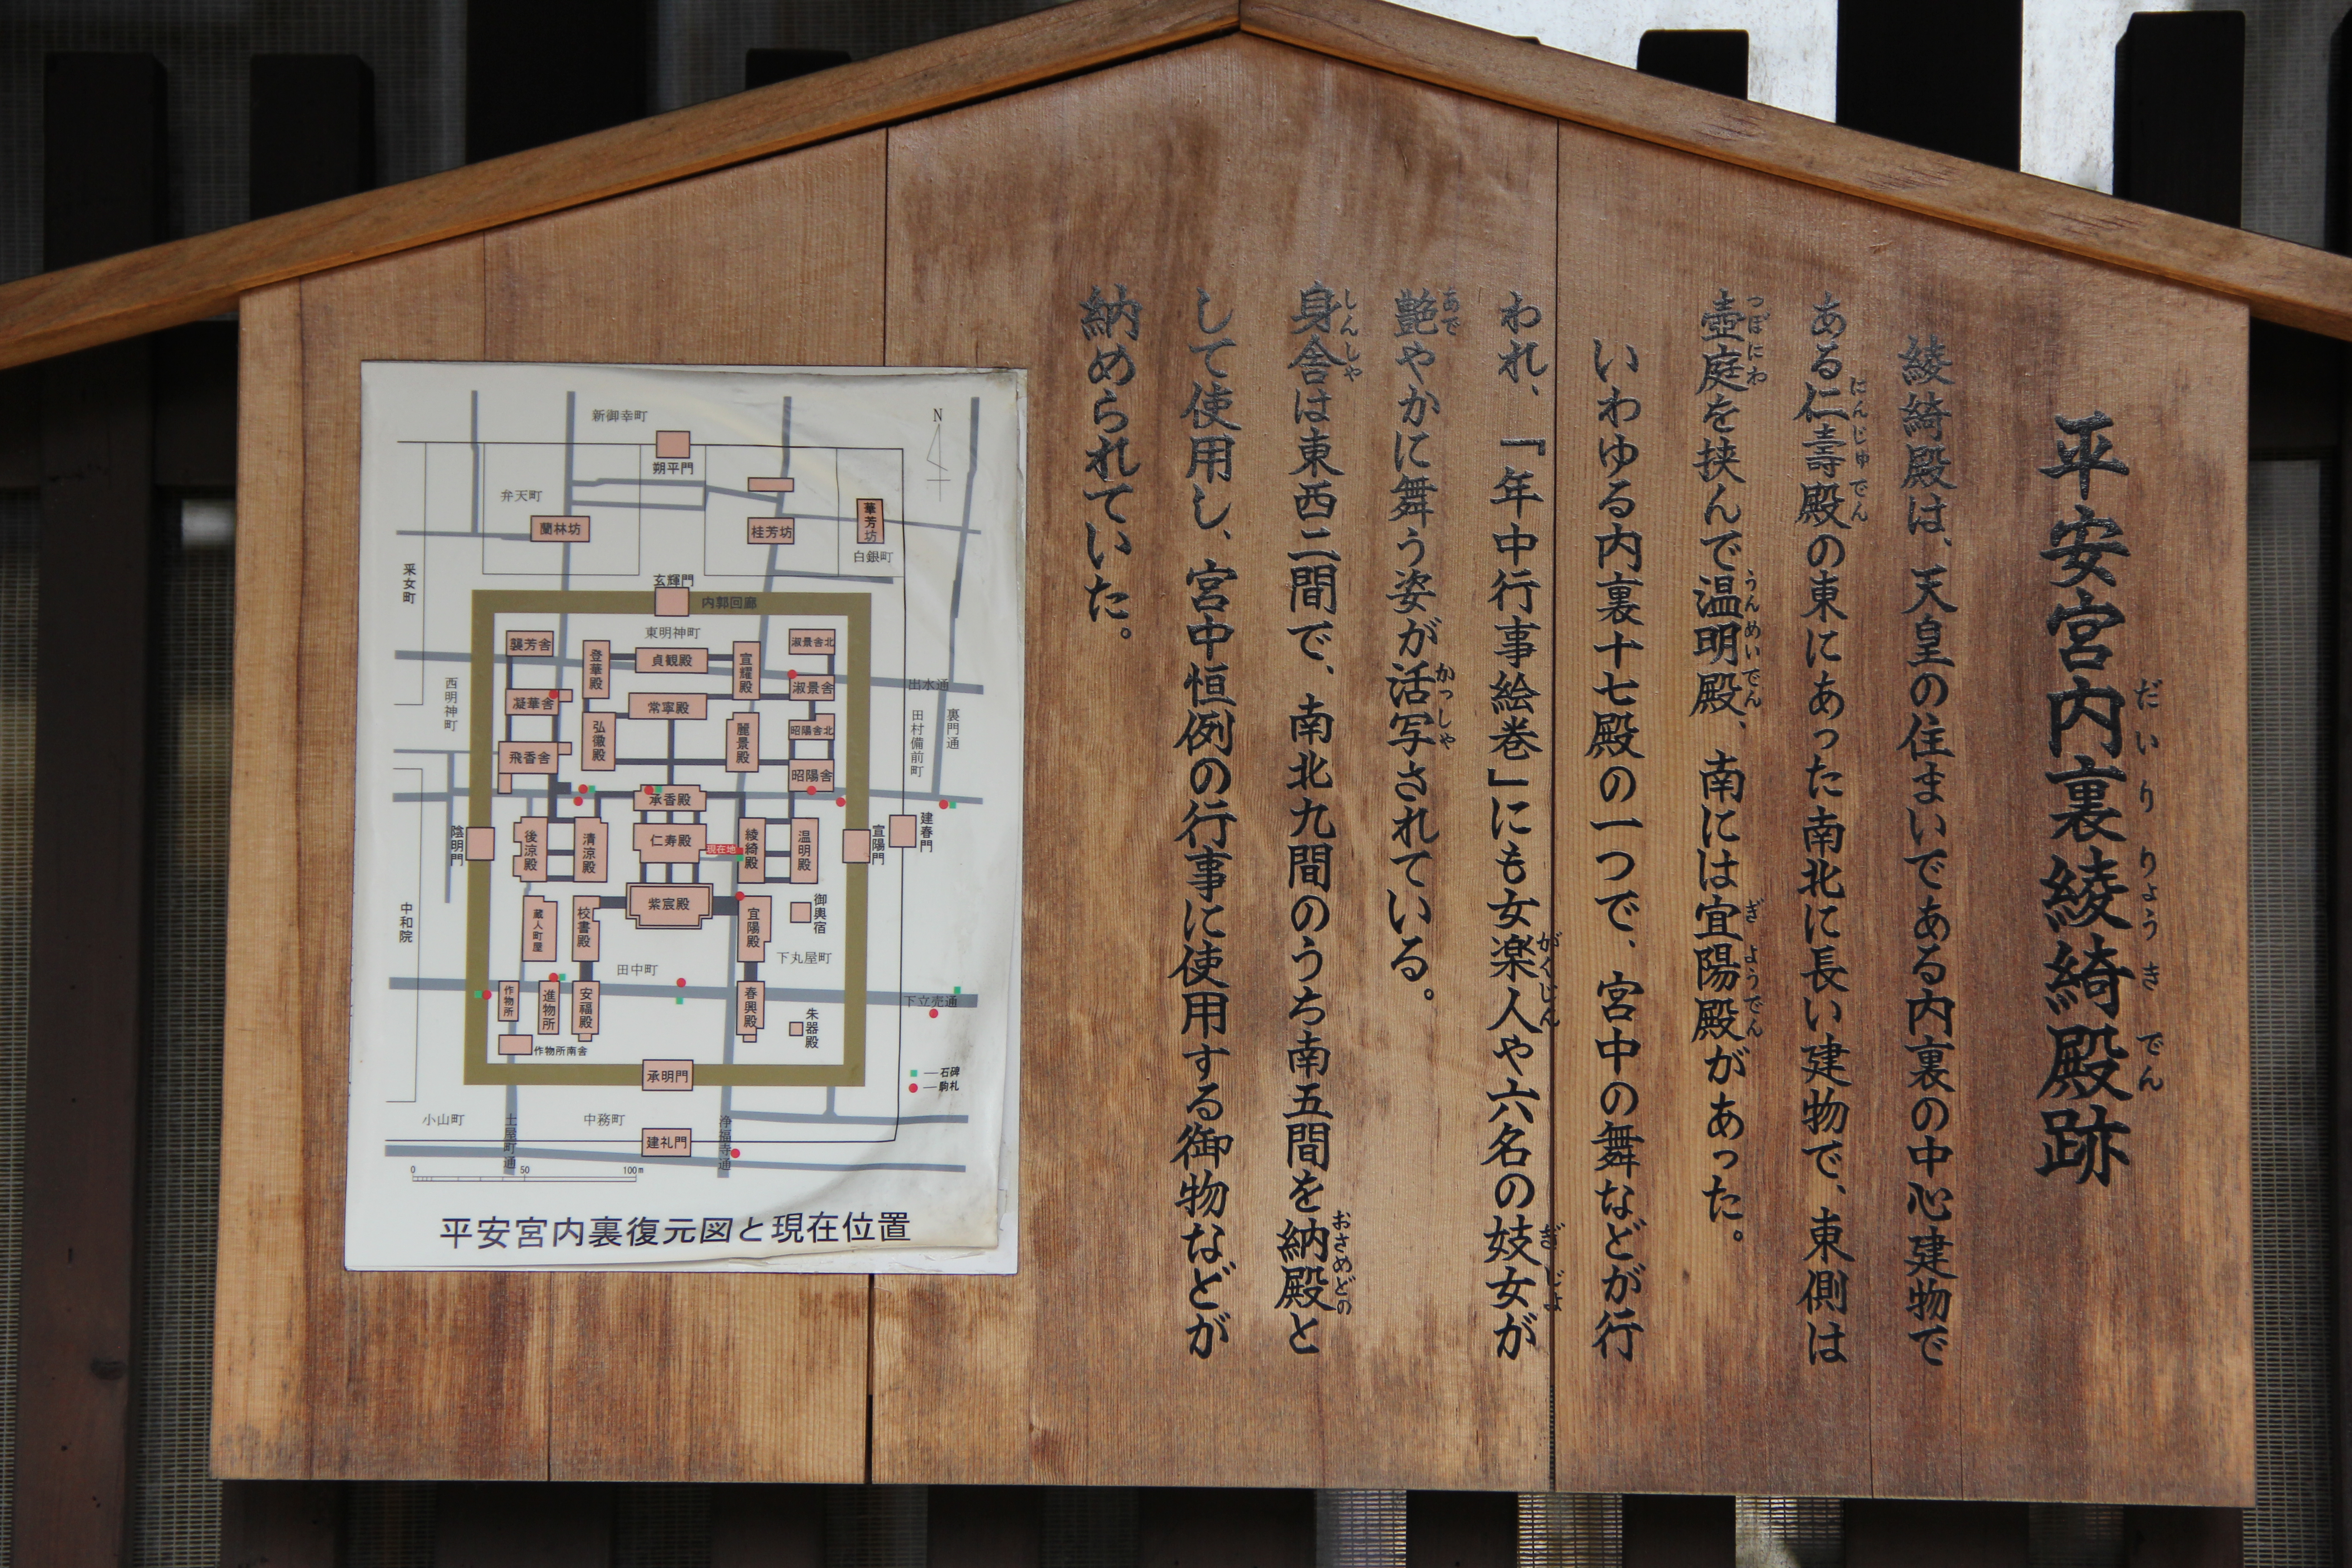 平安宮内裏綾綺殿跡
だいりりょうきでん
綾綺殿は、天皇の住まいである内裏の中心建物で
ある仁壽殿の東にあった南北に長い建物で、東側は
にんじゅでん
壺庭を挟んで温明殿、南には宜陽殿があった。
つぼにわ
うんめいでん
ぎようでん
いわゆる内裏十七殿の一つで、宮中の舞などが行
われ、『年中行事絵巻』にも女楽人や六名の妓女が
がくじん
ぎじょ
艶やかに舞う姿が活写されている。
あで
かっしゃ
身舎は東西二間で、南北九間のうち南五間を納殿と
しんしゃ
おさめどの
して使用し、宮中恒例の行事に使用する御物などが
納められていた。
新御幸町
N
朔平門
弁天町
蘭林坊
桂芳坊
華芳坊
白銀町
采女町
玄輝門
内郭回廊
東明神町
襲芳舎
登華殿
貞観殿
宣耀殿
淑景舎北
西明神町
凝華舎
常寧殿
淑景舎
出水通
弘徽殿
麗景殿
昭陽舎北
田村備前町
裏門通
飛香舎
昭陽舎
承香殿
陰明門
後涼殿
清涼殿
仁寿殿
現在地
綾綺殿
温明殿
宣陽門
建春門
中和院
蔵人町屋
校書殿
紫宸殿
宜陽殿
御輿宿
田中町
下丸屋町
作物所
進物所
安福殿
春興殿
朱器殿
下立売通
作物所南舎
承明門
石碑
駒札
小山町
土屋町通
中務町
建礼門
浄福寺通
0 50 100m
平安宮内裏復元図と現在位置